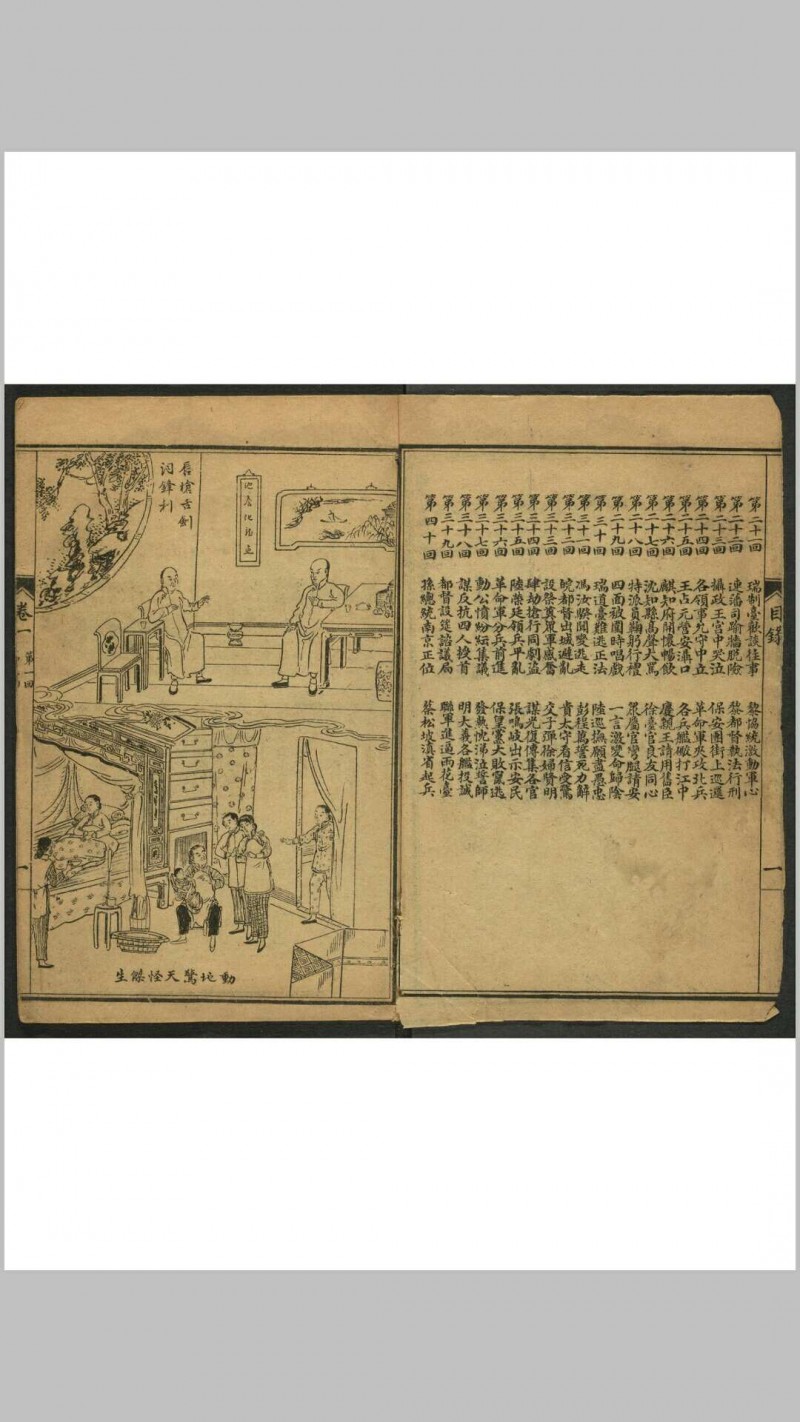 目錄
第二十一回 瑞制臺歡談往事 黎協統激動軍心
第二十二回 連藩司踰牆脫險 黎都督執法行刑
第二十三回 攝政王宮中哭泣 保安團街上巡邏
第二十四回 各領事允守中立 革命軍夾攻北兵
第二十五回 王占元營安灄口 各兵艦礮打江中
第二十六回 麒知府開懷暢飲 慶親王請用舊臣
第二十七回 沈知縣高聲大罵 徐臺官良友同心
第二十八回 特派員鞠躬行禮 眾屬官彎腿請安
第二十九回 四面被圍時唱戲 一言激變命歸陰
第三十回 瑞道臺難逃正法 陸巡撫願盡愚忠
第三十一回 馮汝骙聞變逃走 彭程萬誓死力解
第三十二回 皖都督出城避亂 貴太守看信受驚
第三十三回 設祭奠眾軍感奮 交子彈徐婦賢明
第三十四回 肆劫搶行同劇盜 謀光復傳集各官
第三十五回 陸榮廷領兵平亂 張鳴岐出示安民
第三十六回 革命軍分兵前進 保皇黨大敗竄逃
第三十七回 動公憤紛紜集議 發熱忱涕泣誓師
第三十八回 謀反抗四人授首 明大義各艦投誠
第三十九回 都督設筵諮議局 聯軍進逼雨花臺
第四十回 孫總統南京正位 蔡松坡滇省起兵
一
唇槍舌劍
詞鋒利
動地驚天怪傑生
卷一
第一回
一